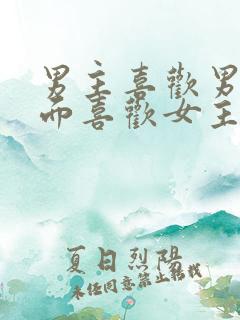 男主喜歡男
而喜歡女主
夏日烈陽
未經同意禁止轉載